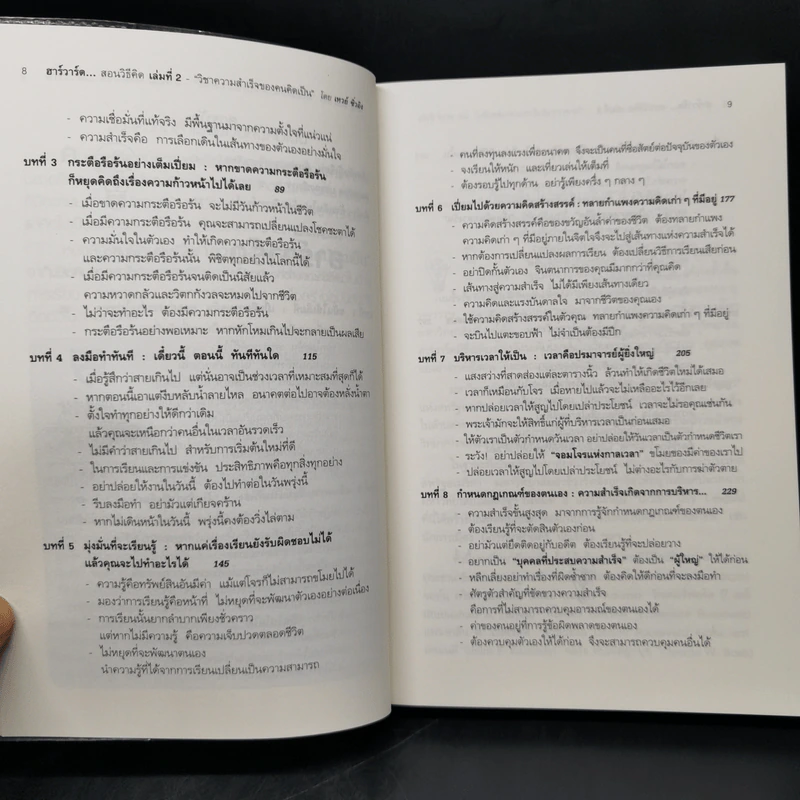 8 ฮาร์วาร์ด... สอนวิธีคิด เล่มที่ 2 - "วิชาความสำเร็จของคนคิดเป็น" โดย
- ความเชื่อมั่นที่แท้จริง มีพื้นฐานมาจากความตั้งใจที่แน่วแน่
- ความสำเร็จคือ การเลือกเดินในเส้นทางของตัวเองอย่างมั่นใจ
บทที่ 3 กระตือรือร้นอย่างเต็มเปี่ยม : หากขาดความกระตือรือร้น
ก็หยุดคิดถึงเรื่องความก้าวหน้าไปได้เลย 89
- เมื่อขาดความกระตือรือร้น จะไม่มีวันก้าวหน้าในชีวิต
- เมื่อมีความกระตือรือร้น คุณจะสามารถเปลี่ยนแปลงโชคชะตาได้
- ความมั่นใจในตัวเอง ทำให้เกิดความกระตือรือร้น
และความกระตือรือร้นนั้น พิชิตทุกอย่างในโลกนี้ได้
- เมื่อมีความกระตือรือร้นจนติดเป็นนิสัยแล้ว
ความหวาดกลัวและวิตกกังวลจะหมดไปจากชีวิต
- ไม่ว่าจะทำอะไร ต้องมีความกระตือรือร้น
- กระตือรือร้นอย่างพอเหมาะ หากหักโหมเกินไปจะกลายเป็นผลเสีย
บทที่ 4 ลงมือทำทันที : เดี๋ยวนี้ ตอนนี้ ทันทีทันใด 115
- เมื่อรู้สึกว่าสายเกินไป แต่นั่นอาจเป็นช่วงเวลาที่เหมาะสมที่สุดก็ได้
- หากตอนนี้เอาแต่งีบหลับน้ำลายไหล อนาคตต่อไปอาจต้องหลั่งน้ำตา
- ตั้งใจทำทุกอย่างให้ดีกว่าเดิม
แล้วคุณจะเหนือกว่าคนอื่นในเวลาอันรวดเร็ว
- ไม่มีคำว่าสายเกินไป สำหรับการเริ่มต้นใหม่ที่ดี
- ในการเรียนและการแข่งขัน ประสิทธิภาพคือทุกสิ่งทุกอย่าง
- อย่าปล่อยให้งานในวันนี้ ต้องไปทำต่อในวันพรุ่งนี้
- รีบลงมือทำ อย่ามัวแต่เกียจคร้าน
- หากไม่เดินหน้าในวันนี้ พรุ่งนี้คงต้องวิ่งไล่ตาม
บทที่ 5 มุ่งมั่นที่จะเรียนรู้ : หากแค่เรื่องเรียนยังรับผิดชอบไม่ได้
แล้วคุณจะไปทำอะไรได้ 145
- ความรู้คือทรัพย์สินอันมีค่า แม้แต่โจรก็ไม่สามารถขโมยไปได้
- มองว่าการเรียนรู้คือหน้าที่ ไม่หยุดที่จะพัฒนาตัวเองอย่างต่อเนื่อง
- การเรียนนั้นยากลำบากเพียงชั่วคราว
แต่หากไม่มีความรู้ คือความเจ็บปวดตลอดชีวิต
- ไม่หยุดที่จะพัฒนาตนเอง
นำความรู้ที่ได้จากการเรียนเปลี่ยนเป็นความสามารถ
9
- คนที่ลงทุนลงแรงเพื่ออนาคต จึงจะเป็นคนที่ซื่อสัตย์ต่อปัจจุบันของตัวเอง
- จงเรียนให้หนัก และเที่ยวเล่นให้เต็มที่
- ต้องรอบรู้ไปทุกด้าน อย่ารู้เพียงครึ่ง ๆ กลาง ๆ
บทที่ 6 เปี่ยมไปด้วยความคิดสร้างสรรค์ : ทลายกำแพงความคิดเก่า ๆ ที่มีอยู่ 177
- ความคิดสร้างสรรค์คือของขวัญอันล้ำค่าของชีวิต ต้องทลายกำแพง
ความคิดเก่า ๆ ที่มีอยู่ภายในจิตใจจึงจะไปสู่เส้นทางแห่งความสำเร็จได้
- หากต้องการเปลี่ยนแปลงผลการเรียน ต้องเปลี่ยนวิธีการเรียนเสียก่อน
- อย่าปิดกั้นตัวเอง จินตนาการของคุณมีมากกว่าที่คุณคิด
- เส้นทางสู่ความสำเร็จ ไม่ได้มีเพียงเส้นทางเดียว
- ความคิดและแรงบันดาลใจ มาจากชีวิตของคุณเอง
- ใช้ความคิดสร้างสรรค์ในตัวคุณ ทลายกำแพงความคิดเก่า ๆ ที่มีอยู่
- จะบินไปแตะขอบฟ้า ไม่จำเป็นต้องมีปีก
บทที่ 7 บริหารเวลาให้เป็น : เวลาคือปรมาจารย์ผู้ยิ่งใหญ่ 205
- แสงสว่างที่สาดส่องแต่ละตารางนิ้ว ล้วนทำให้เกิดชีวิตใหม่ได้เสมอ
- เวลาก็เหมือนกับโจร เมื่อหายไปแล้วจะไม่เหลืออะไรไว้อีกเลย
- หากปล่อยเวลาให้สูญไปโดยเปล่าประโยชน์ เวลาจะไม่รอคุณเช่นกัน
- พระเจ้ามักจะให้สิทธิ์แก่ผู้ที่บริหารเวลาเป็นก่อนเสมอ
- ให้ตัวเราเป็นตัวกำหนดวันเวลา อย่าปล่อยให้วันเวลาเป็นตัวกำหนดชีวิตเรา
- ระวัง! อย่าให้ "จอมโจรแห่งกาลเวลา" ขโมยของมีค่าของเราไป
- ปล่อยเวลาให้สูญไปโดยเปล่าประโยชน์ ไม่ต่างอะไรกับการฆ่าตัวตาย
บทที่ 8 กำหนดกฎเกณฑ์ของตนเอง : ความสำเร็จเกิดจากการบริหาร... 229
- ความสำเร็จขั้นสูงสุด มาจากการรู้จักกำหนดกฎเกณฑ์ของตนเอง
- ต้องเรียนรู้ที่จะตัดสินตัวเองก่อน
- อย่ามัวแต่ยึดติดอยู่กับอดีต ต้องเรียนรู้ที่จะปล่อยวาง
- อยากเป็น "บุคคลที่ประสบความสำเร็จ" ต้องเป็น "ผู้ใหญ่" ให้ได้ก่อน
- หลีกเลี่ยงอย่าทำเรื่องที่ผิดซ้ำซาก ต้องคิดให้ดีก่อนที่จะลงมือทำ
- ศัตรูตัวสำคัญที่ขัดขวางความสำเร็จ
คือการที่ไม่สามารถควบคุมอารมณ์ของตนเองได้
- ค่าของคนอยู่ที่การรู้ข้อผิดพลาดของตนเอง
- ต้องควบคุมตัวเองให้ได้ก่อน จึงจะสามารถควบคุมคนอื่นได้